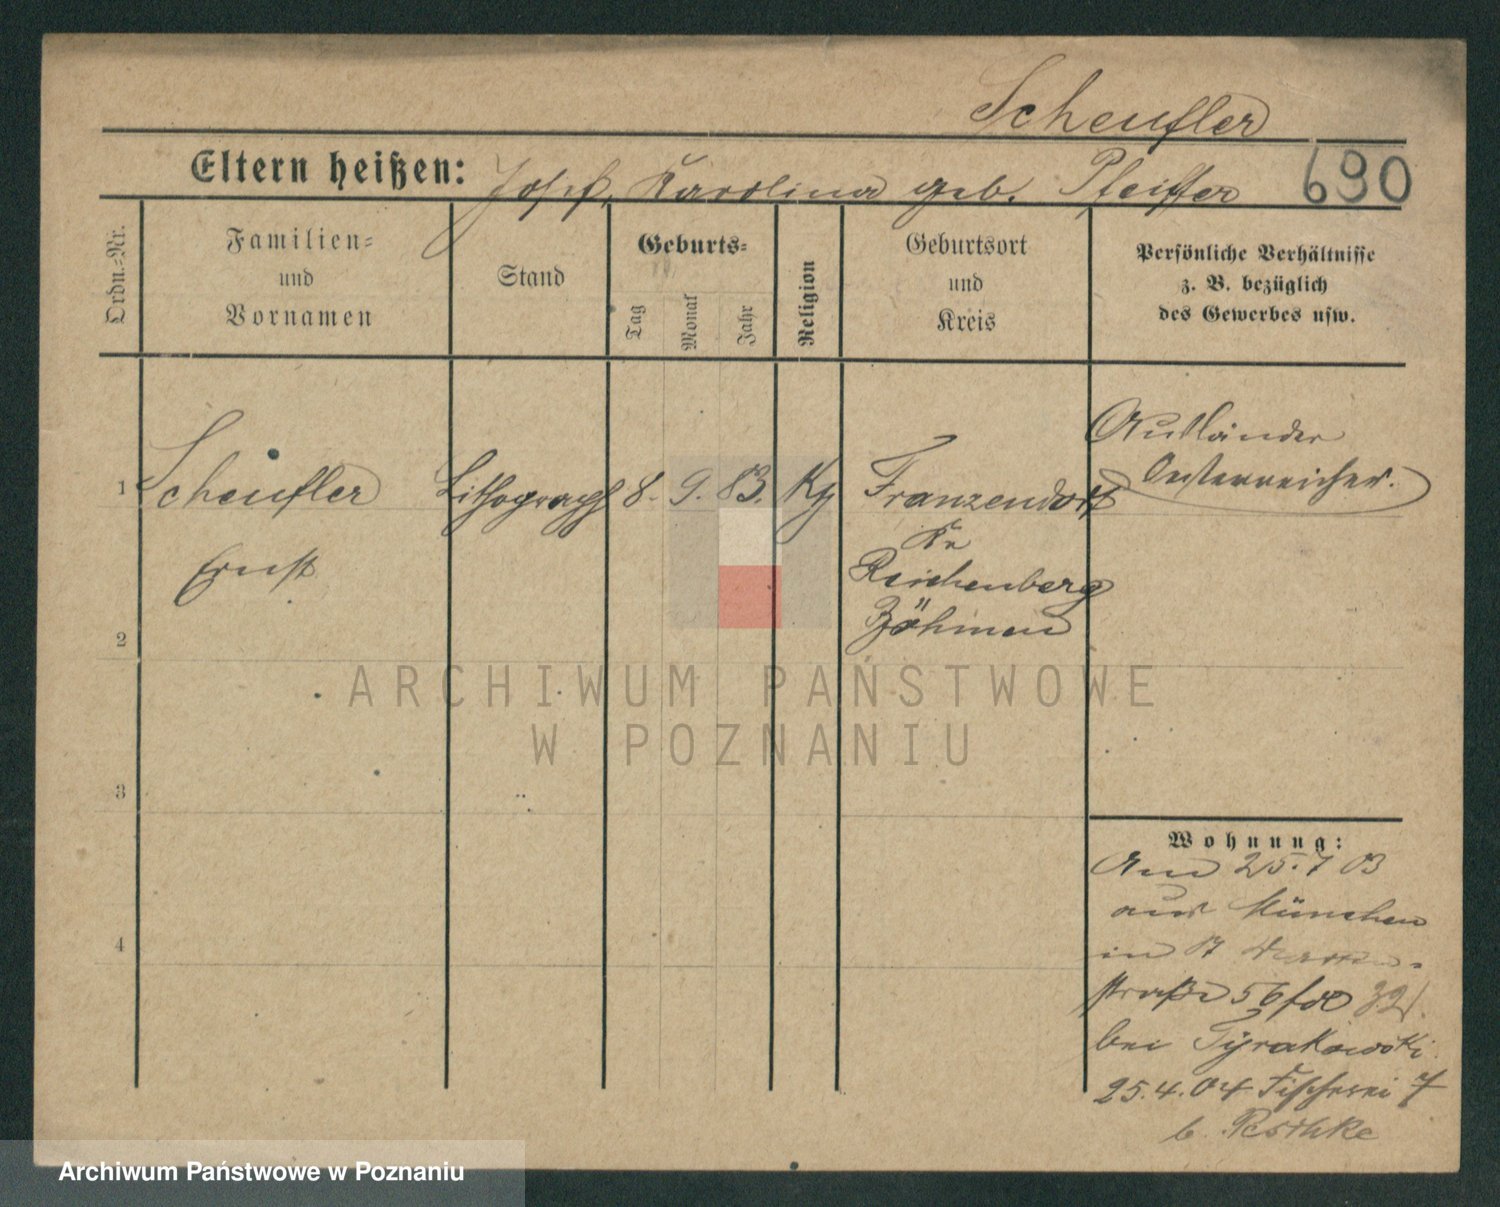 Scheufler
Eltern heißen: Josef, Karolina geb. Pfeiffer 690
Ordn.-Nr.
Familien-
und
Vornamen
Stand
Geburts-
Tag
Monat
Jahr
Religion
Geburtsort
und
Kreis
Persönliche Verhältnisse
z. B. bezüglich
des Gewerbes usw.
1 Scheufler Lithograph 8. 9. 83. Kg Franzendorf
Ernst
Kr
Reichenberg
Böhmen
Ausländer
Oesterreicher.
2
3
4
Wohnung:
Am 25.7 03
aus München
in
straße 56
bei Tyrakowski
25.4.04 Fischerei 7
b. Peschke
ARCHIWUM PAŃSTWOWE
W POZNANIU
Archiwum Państwowe w Poznaniu